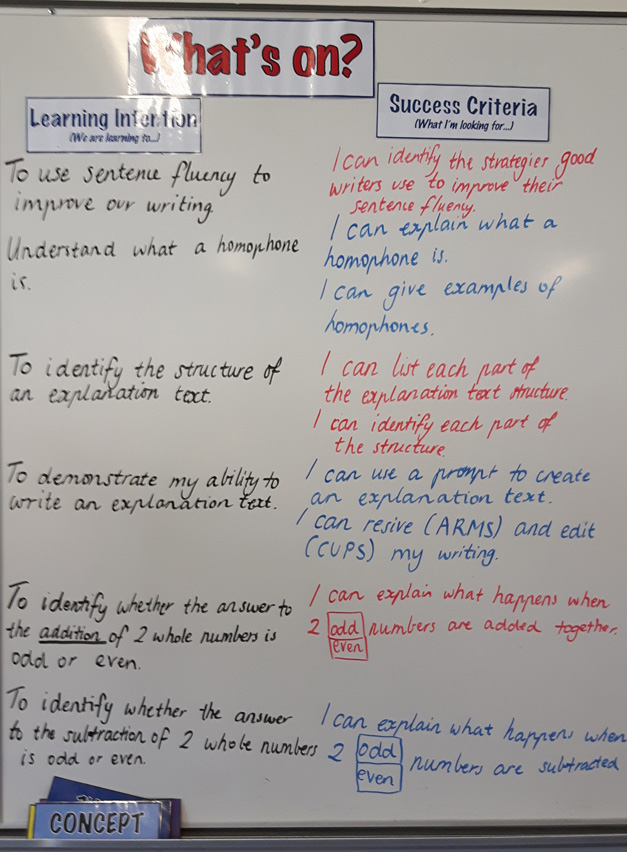 What's on?
Learning Intention
(We are learning to...)
To use sentence fluency to
improve our writing.
Understand what a homophone
is.
To identify the structure of
an explanation text.
To demonstrate my ability to
write an explanation text.
To identify whether the answer to
the addition of 2 whole numbers is
odd or even.
To identify whether the answer
to the subtraction of 2 whole numbers
is odd or even.
Success Criteria
(What I'm looking for...)
I can identify the strategies good
writers use to improve their
sentence fluency.
I can explain what a
homophone is.
I can give examples of
homophones.
I can list each part of
the explanation text structure.
I can identify each part of
the structure.
I can use a prompt to create
an explanation text.
I can resive (ARMS) and edit
(CUPS) my writing.
I can explain what happens when
2 odd numbers are added together.
even
I can explain what happens when
2 odd
even numbers are subtracted
CONCEPT